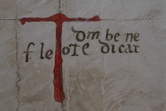 T dm be ne
f le ote dicat